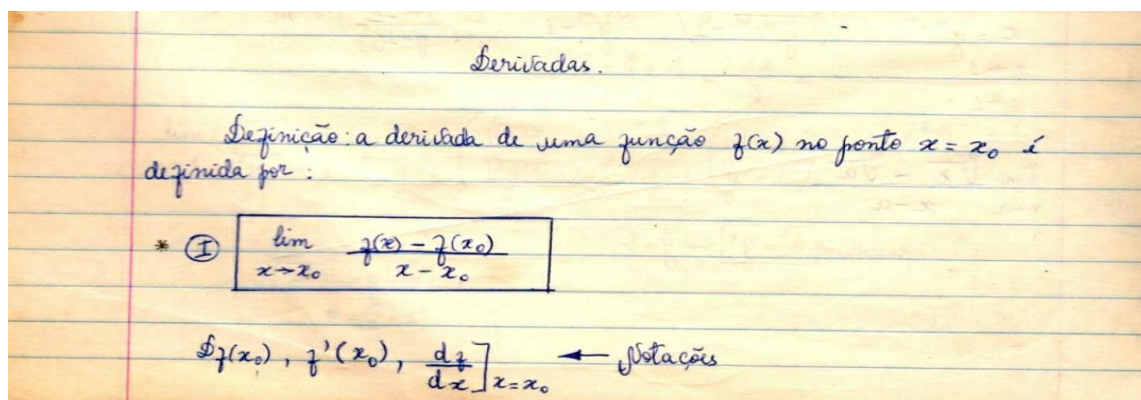 Derivadas.
Definição: a derivada de uma função f(x) no ponto x = x₀ é
definida por:
* Ⓘ lim x→x₀ f(x) − f(x₀) / x − x₀
Df(x₀), f'(x₀), df/dx]x=x₀ ← Notações